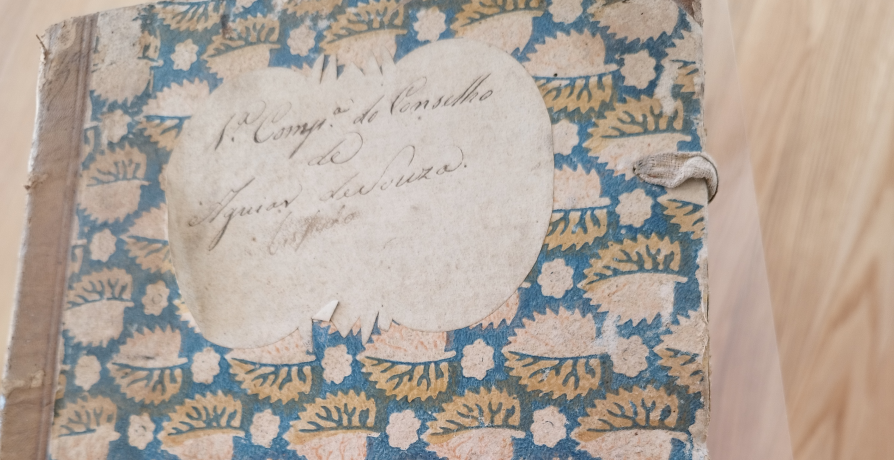 1.ª Comp.ª do Conselho
de
Aguiar de Souza.